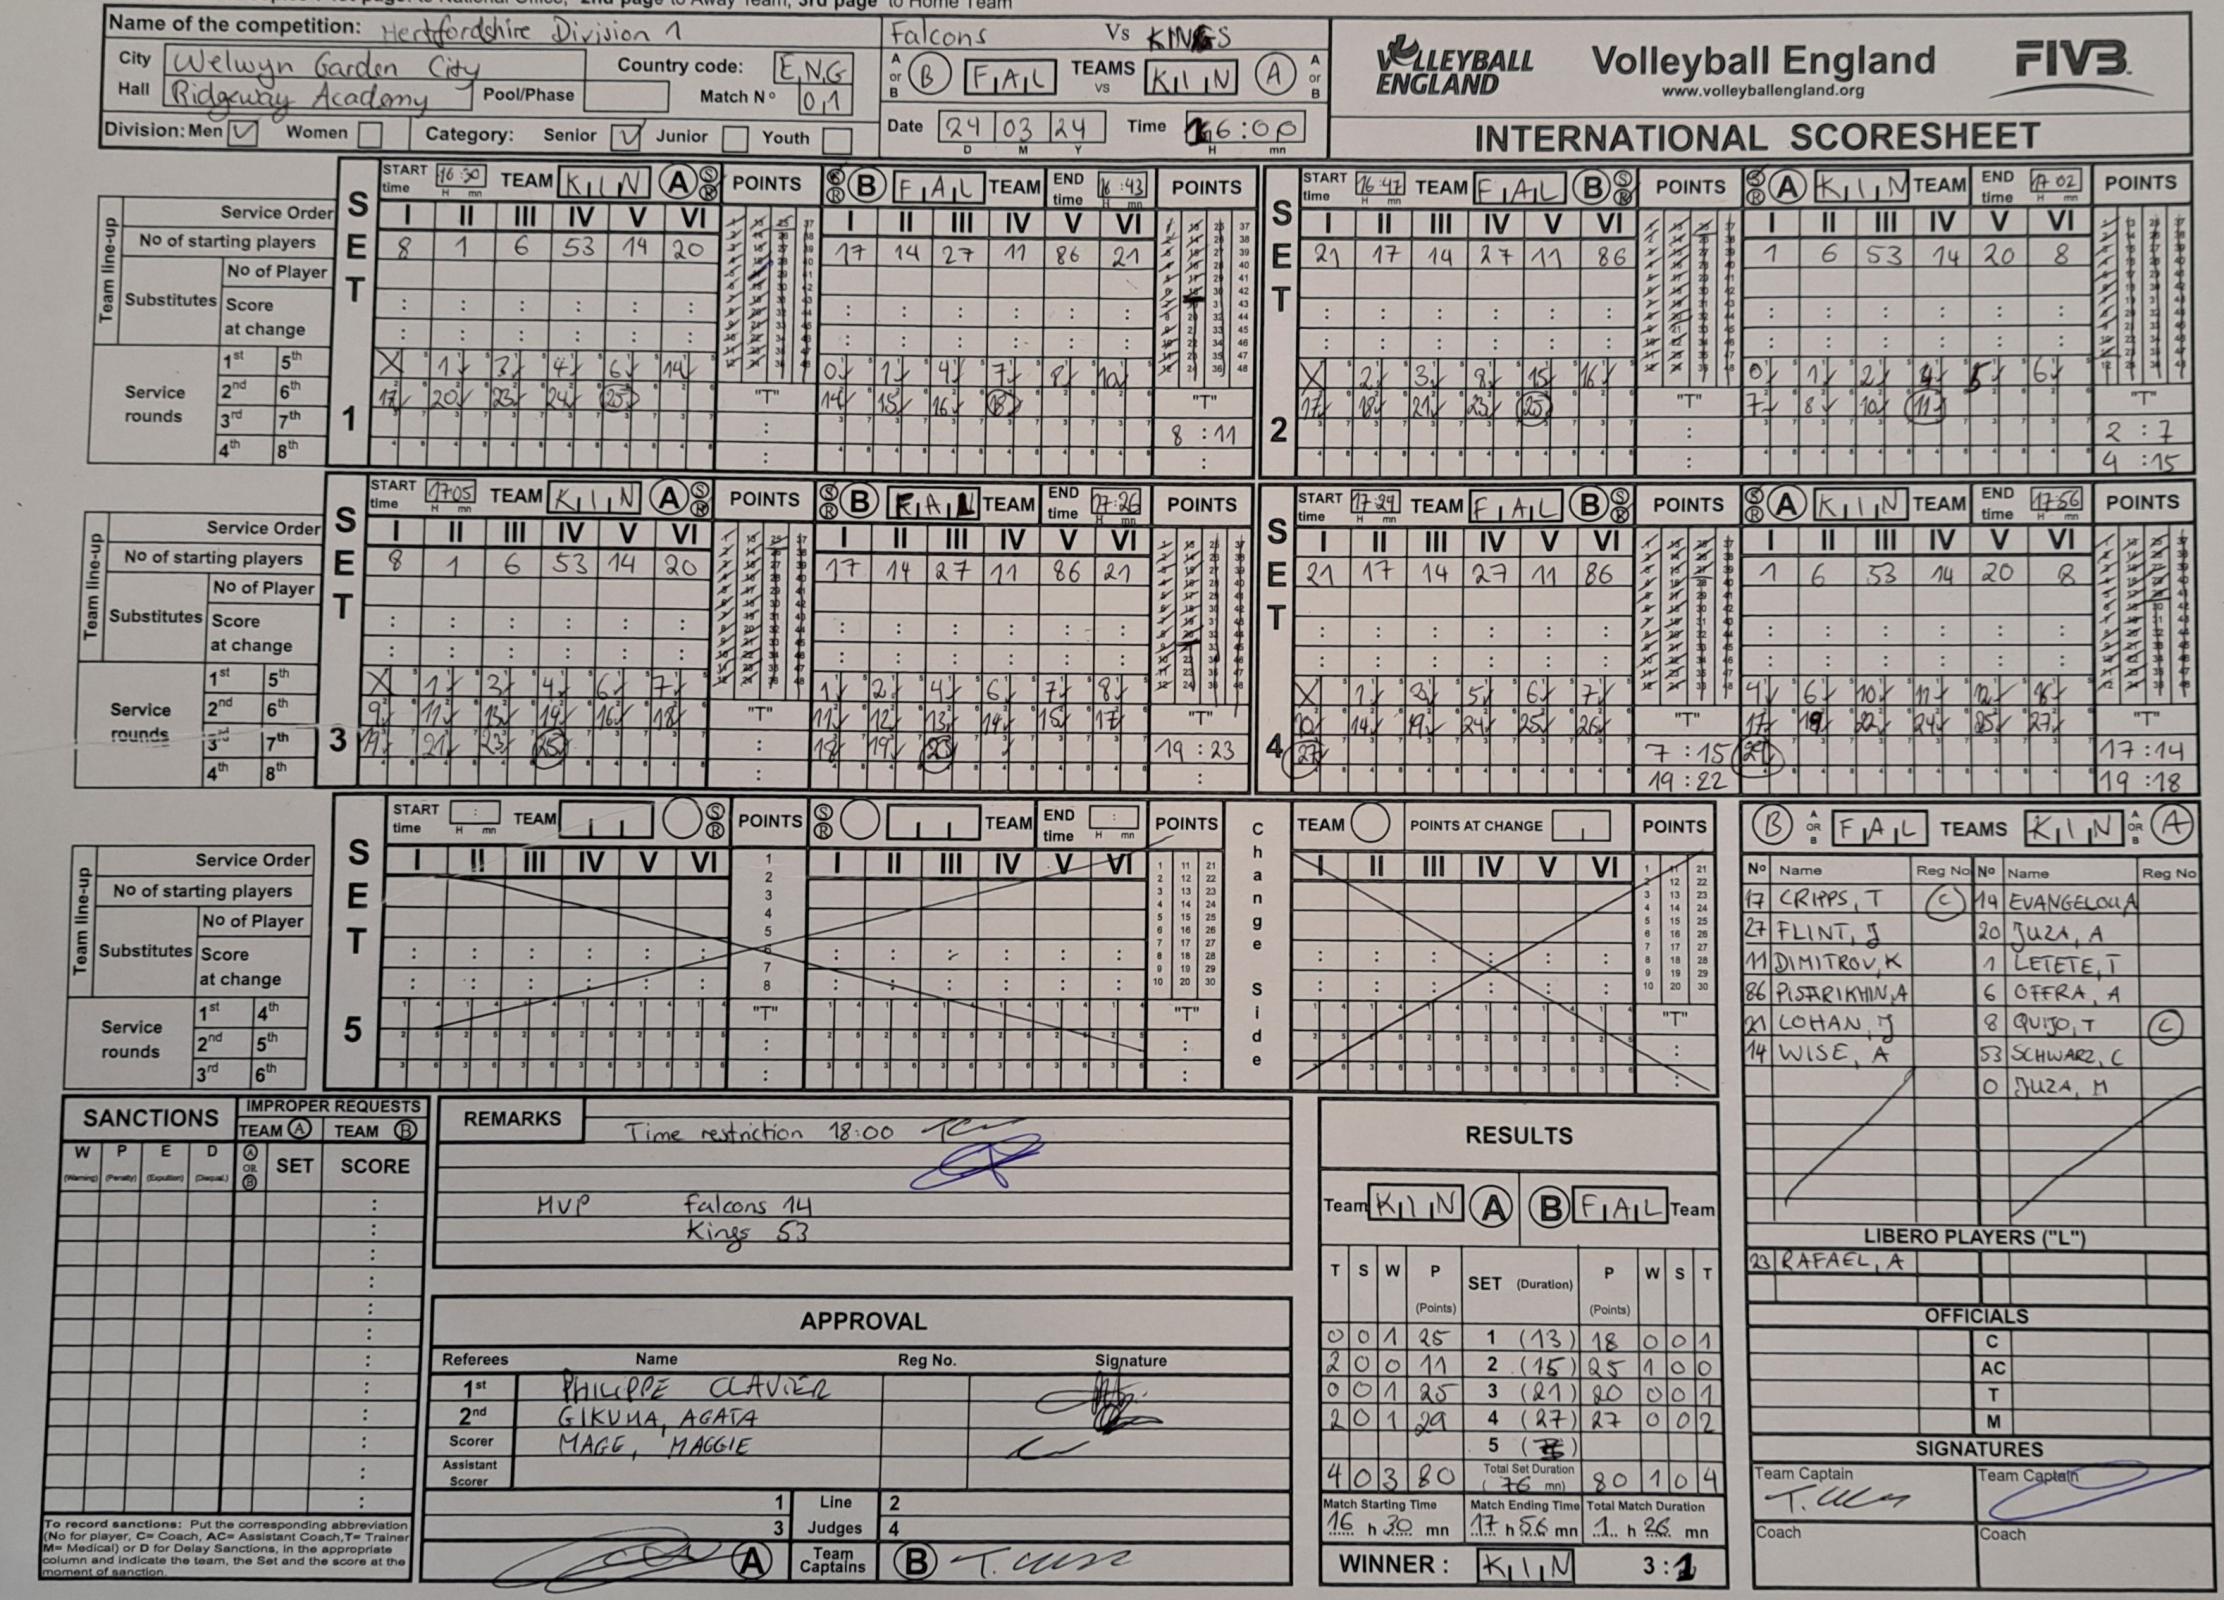 2nd page to Away Team, 3rd page to Home Team
Name of the competition: Hertfordshire Division 1
City Welwyn Garden City
Country code: ENG
Hall Ridgeway Academy
Pool/Phase
Match N° 01
Division: Men Women Category: Senior Junior Youth
Falcons Vs KINGS
A or B B FAL TEAMS vs KIN A A or B
Date 24 03 24 Time 16:00
D M Y H mn
VOLLEYBALL ENGLAND
Volleyball England
www.volleyballengland.org
FIVB
INTERNATIONAL SCORESHEET
SET 1
START time 16:30 TEAM KIN A S R POINTS
S R B FAL TEAM END time 16:43 POINTS
Team line-up
Service Order I II III IV V VI
I II III IV V VI
No of starting players 8 1 6 53 14 20
17 14 27 11 86 21
Substitutes
No of Player
Score at change
Service rounds
1st 5th X 1 3 4 6 14
0 1 4 7 8 10
2nd 6th 17 20 23 24 25
14 15 16 18
3rd 7th
4th 8th
"T"
"T" 8 : 11
SET 2
START time 16:47 TEAM FAL B S R POINTS
S R A KIN TEAM END time 17 02 POINTS
I II III IV V VI
I II III IV V VI
21 17 14 27 11 86
1 6 53 14 20 8
X 2 3 8 15 16
0 1 2 4 5 6
17 18 21 23 25
7 8 10 11
"T"
"T" 2 : 7
4 : 15
SET 3
START time 17 05 TEAM KIN A S R POINTS
S R B FAL TEAM END time 17:26 POINTS
Team line-up
Service Order I II III IV V VI
I II III IV V VI
No of starting players 8 1 6 53 14 20
17 14 27 11 86 21
Substitutes
No of Player
Score at change
Service rounds
1st 5th X 1 3 4 6 7
1 2 4 6 7 8
2nd 6th 9 11 13 14 16 18
11 12 13 14 15 17
3rd 7th 19 21 23 25
18 19 20
4th 8th
"T"
"T" 19 : 23
SET 4
START time 17:29 TEAM FAL B S R POINTS
S R A KIN TEAM END time 17:56 POINTS
I II III IV V VI
I II III IV V VI
21 17 14 27 11 86
1 6 53 14 20 8
X 1 3 5 6 7
4 6 10 11 12 16
10 14 19 24 25 26
17 19 22 24 25 27
27
29
"T" 7 : 15
19 : 22
"T" 17 : 14
19 : 18
SET 5
START time H mn TEAM S R POINTS
S R TEAM END time H mn POINTS
Change Side
TEAM POINTS AT CHANGE POINTS
Team line-up
Service Order I II III IV V VI
I II III IV V VI
I II III IV V VI
No of starting players
Substitutes
No of Player
Score at change
Service rounds
1st 4th
2nd 5th
3rd 6th
"T"
"T"
"T"
B A OR B FAL TEAMS KIN A OR B A
N° Name Reg No N° Name Reg No
17 CRIPPS, T C 19 EVANGELOU A
27 FLINT, J 20 JUZA, A
11 DIMITROV, K 1 LETETE, T
86 PISARIKHIN, A 6 OFFRA, A
21 LOHAN, J 8 QUIJO, T C
14 WISE, A 53 SCHWARZ, C
0 JUZA, M
LIBERO PLAYERS ("L")
23 RAFAEL, A
OFFICIALS
C
AC
T
M
SIGNATURES
Team Captain Team Captain
Coach Coach
SANCTIONS
IMPROPER REQUESTS
TEAM A TEAM B
W P E D A OR B SET SCORE
(Warning) (Penalty) (Expulsion) (Disqual.)
To record sanctions: Put the corresponding abbreviation
(No for player, C= Coach, AC= Assistant Coach,T= Trainer
M= Medical) or D for Delay Sanctions, in the appropriate
column and indicate the team, the Set and the score at the
moment of sanction.
REMARKS
Time restriction 18:00
MVP Falcons 14
Kings 53
APPROVAL
Referees Name Reg No. Signature
1st PHILIPPE CLAVIER
2nd GIKUMA, AGATA
Scorer MAGE, MAGGIE
Assistant Scorer
1 Line 2
3 Judges 4
A Team Captains B
RESULTS
Team KIN A B FAL Team
T S W P (Points) SET (Duration) P (Points) W S T
0 0 1 25 1 (13) 18 0 0 1
2 0 0 11 2 (15) 25 1 0 0
0 0 1 25 3 (21) 20 0 0 1
2 0 1 29 4 (27) 27 0 0 2
5
4 0 3 80 Total Set Duration (76 mn) 80 1 0 4
Match Starting Time Match Ending Time Total Match Duration
16 h 30 mn 17 h 56 mn 1 h 26 mn
WINNER : KIN 3:1